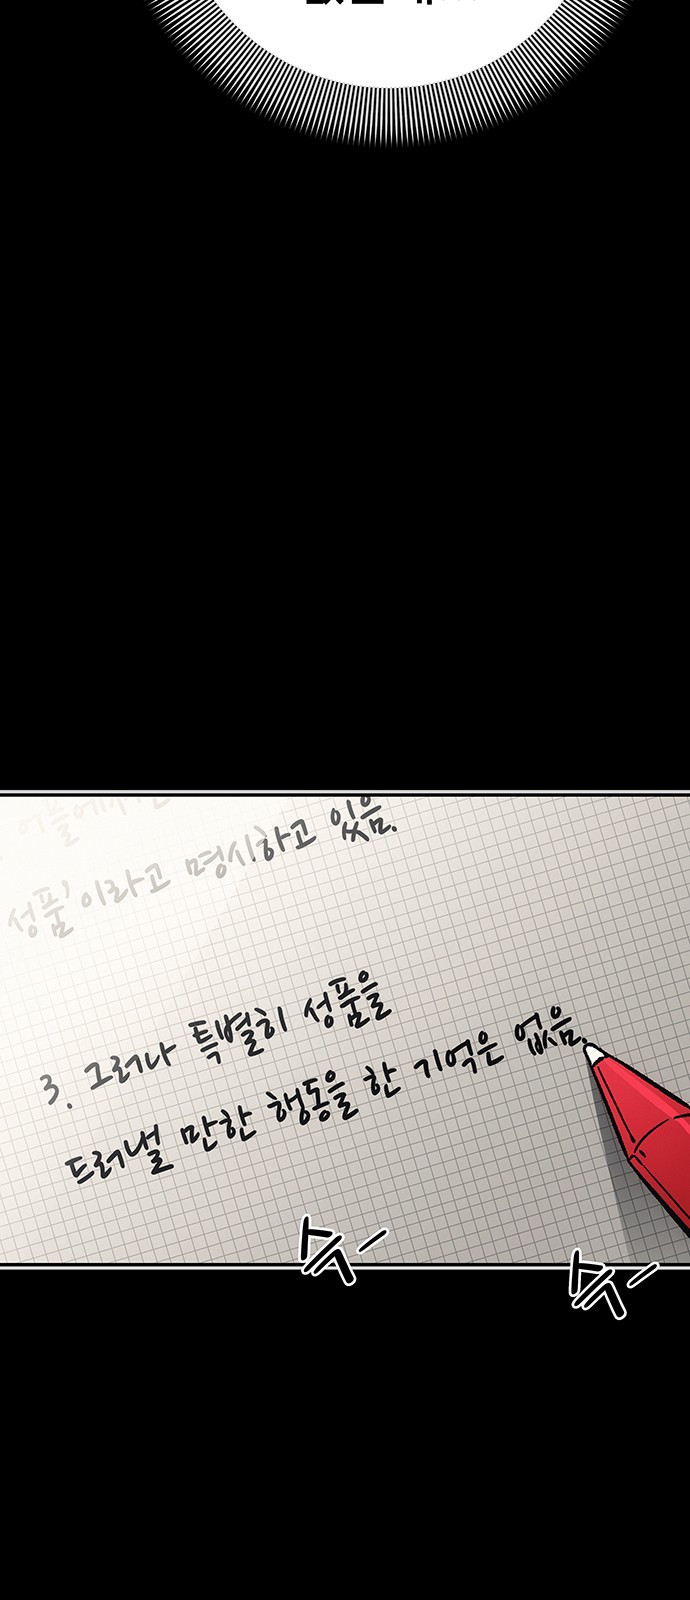 성품'이라고 명시하고 있음.
3. 그러나 특별히 성품을
드러낼 만한 행동을 한 기억은 없음.
스윽—
스윽—